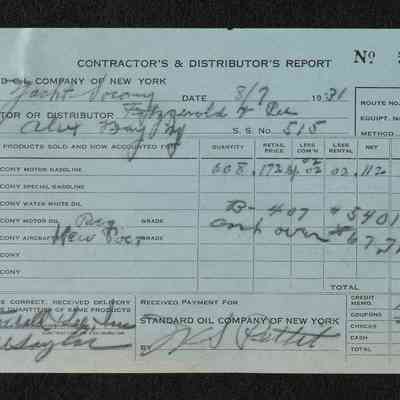 CONTRACTOR'S & DISTRIBUTOR'S REPORT
Nº
D OIL COMPANY OF NEW YORK
Yacht Socony DATE 8/7 1931
ROUTE NO.
TOR OR DISTRIBUTOR Fitzgerald & Lee
EQUIPT. NO.
Alex Bay NY S. S. NO. 515
METHOD
PRODUCTS SOLD AND NOW ACCOUNTED FOR QUANTITY RETAIL PRICE LESS COM'N LESS RENTAL NET PRICE
CONY MOTOR GASOLINE 608 .172 02 .112
CONY SPECIAL GASOLINE
CONY WATER WHITE OIL B- 407 5401
CONY MOTOR OIL GRADE
CONY AIRCRAFT GRADE over
CONY
CONY
TOTAL
IS CORRECT, RECEIVED DELIVERY
QUANTITIES OF SAME PRODUCTS
RECEIVED PAYMENT FOR
STANDARD OIL COMPANY OF NEW YORK
BY
CREDIT MEMO.
COUPONS
CHECKS
CASH
TOTAL